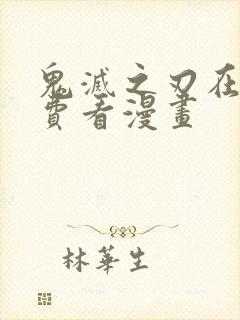 鬼滅之刃在
費看漫畫
林華生